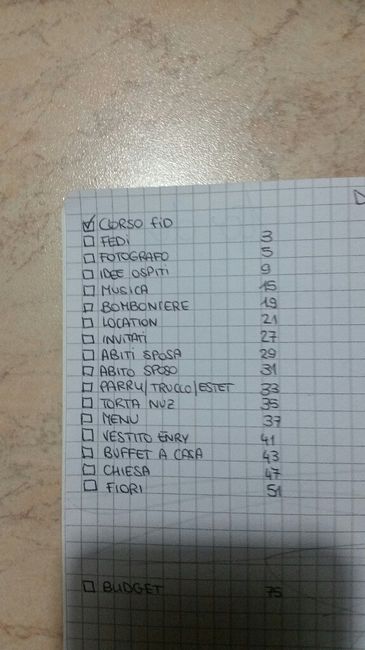 ☑ CORSO FID
☐ FEDI 3
☐ FOTOGRAFO 5
☐ IDEE OSPITI 9
☐ MUSICA 15
☐ BOMBONIERE 19
☐ LOCATION 21
☐ INVITATI 27
☐ ABITI SPOSA 29
☐ ABITO SPOSO 31
☐ PARRU/TRUCCO/ESTET 33
☐ TORTA NUZ 35
☐ MENU 37
☐ VESTITO ENRY 41
☐ BUFFET A CASA 43
☐ CHIESA 47
☐ FIORI 51
☐ BUDGET 75